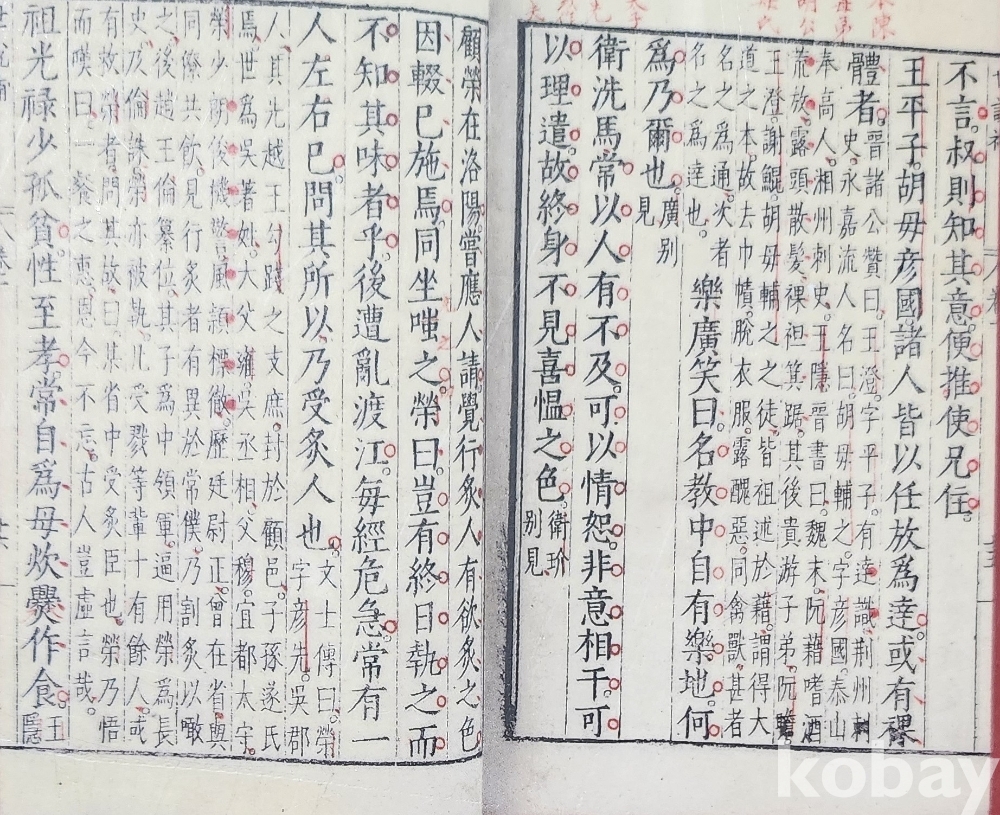 不言。叔則知其意。便推使兄住。
王平子。胡毋彥國諸人。皆以任放爲達。或有裸
體者。
晉諸公贊曰。王澄。字平子。有達識。荊州刺
史。永嘉流人名曰。胡毋輔之。字彥國。泰山
奉高人。湘州刺史。王隱晉書曰。魏末。阮籍嗜酒
荒放。露頭散髮。裸袒箕踞。其後貴游子弟。阮瞻
王澄。謝鯤。胡毋輔之之徒。皆祖述於籍。謂得大
道之本。故去巾幘。脫衣服。露醜惡。同禽獸。甚者
名之爲通。次者
名之爲達也。
樂廣笑曰。名教中自有樂地。何
爲乃爾也。
廣別
見
衛洗馬常以人有不及。可以情恕。非意相干。可
以理遣。故終身不見喜慍之色。
衛玠
別見
顧榮在洛陽。嘗應人請。覺行炙人有欲炙之色
因輟已施焉。同坐嗤之。榮曰。豈有終日執之而
不知其味者乎。後遭亂渡江。每經危急。常有一
人左右已。問其所以。乃受炙人也。
文士傳曰。榮
字彥先。吳郡
人。其先越王勾踐之支庶。封於顧邑。子孫遂氏
焉。世爲吳著姓。大父雍。吳丞相。父穆。宜都太守。
榮少朗俊機警。風穎標徹。歷廷尉正。曾在省與
同僚共飲。見行炙者有異於常僕。乃割炙以噉
之。後趙王倫篡位。其子爲中領軍。逼用榮爲長
史。及倫誅。榮亦被執。凡受戮等輩十有餘人。或
有救榮者。問其故。曰。某省中受炙臣也。榮乃悟
而嘆曰。一餐之惠。恩今不忘。古人豈虛言哉。
祖光祿少孤貧。性至孝。常自爲母炊爨作食。
王
隱
kobay